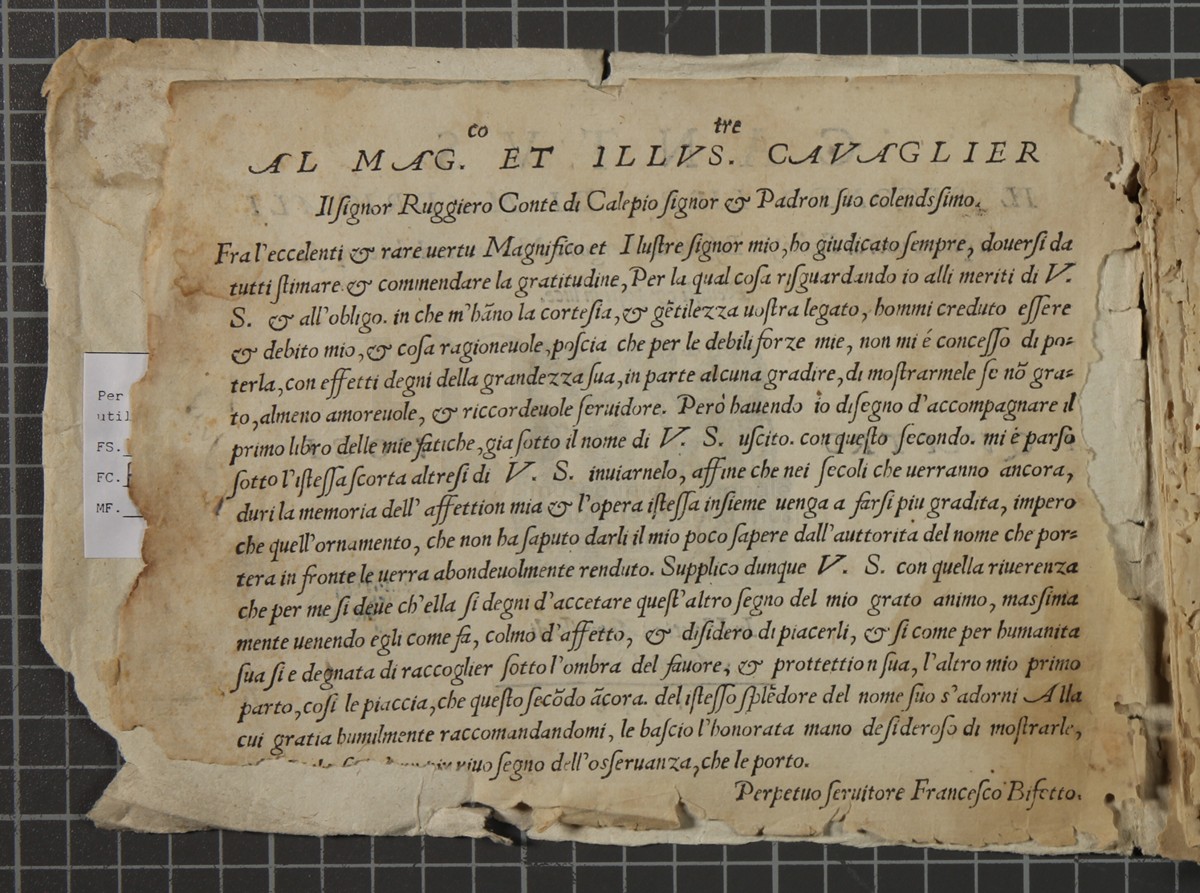 AL MAG.co ET ILLVS.tre CAVAGLIER
Il ſignor Ruggiero Conte di Calepio ſignor & Padron ſuo colendſsimo.
Fra l'eccelenti & rare uertu Magnifico et Iluſtre ſignor mio, ho giudicato ſempre, douerſi da
tutti ſtimare & commendare la gratitudine, Per la qual coſa riſguardando io alli meriti di V.
S. & all'obligo. in che m'hãno la corteſia, & gẽtilezza uoſtra legato, hommi creduto eſſere
& debito mio, & coſa ragioneuole, poſcia che per le debili forze mie, non mi é conceſſo di po=
terla, con effetti degni della grandezza ſua, in parte alcuna gradire, di moſtrarmele ſe nõ gra=
to, almeno amoreuole, & riccordeuole ſeruidore. Però hauendo io diſegno d'accompagnare il
primo libro delle mie fatiche, gia ſotto il nome di V. S. uſcito. con queſto ſecondo. mi è parſo
ſotto l'iſteſſa ſcorta altreſi di V. S. inuiarnelo, affine che nei ſecoli che uerranno ancora,
duri la memoria dell' affettion mia & l'opera iſteſſa inſieme uenga a farſi piu gradita, impero
che quell'ornamento, che non ha ſaputo darli il mio poco ſapere dall'auttorità del nome che por=
tera in fronte le uerra abondeuolmente renduto. Supplico dunque V. S. con quella riuerenza
che per me ſi deue ch'ella ſi degni d'accetare queſt'altro ſegno del mio grato animo, maſsima
mente uenendo egli come fa, colmo d'affetto, & diſidero di piacerli, & ſi come per humanita
ſua ſi e degnata di raccoglier ſotto l'ombra del fauore, & prottettion ſua, l'altro mio primo
parto, coſi le piaccia, che queſto ſecõdo ãcora. del iſteſſo ſplẽdore del nome ſuo s'adorni Alla
cui gratia humilmente raccomandandomi, le baſcio l'honorata mano deſideroſo di moſtrarle,
uiuo ſegno dell'oſſeruanza, che le porto.
Perpetuo ſeruitore Franceſco Bifetto.
Per
util
FS.
FC.
MF.